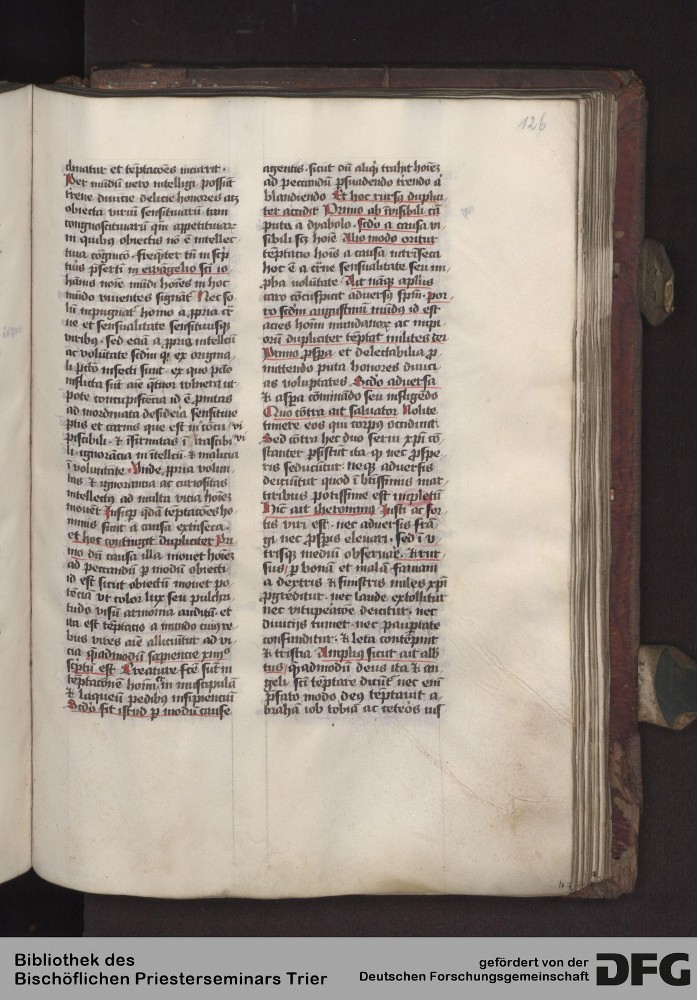 126
dinatur et teptacoes incurit ·
Per mudu vero intelligi possut
divicie delicie honores atq
obiecta viriu sensitivaru tam
cognoscitivaru qm appetitivar
in quibq obiectis no e intellec
tiva cognico · freqter tn in scp
tuis pferti in ewagelio sci io
hanis noie mudi hoies in hoc
mudo viventes signat Nec so
lu inpugnat homo a ppria cr
ne et sensualitate sensitivisq
viribq · sed ecia a ppria intellcu
ac voluntate scdm q ex origina
li pcto infecti sunt · ex quo pcto
inflicta sut aie qtuor vulnera ut
pote concupiscecia id e pnitas
ad inordinata desideria sensitive
ptis et carnis que est in cocu vi
piscibili · & ifirmitas i irascibi vi
li · ignorancia in itellcu · & malicia
i voluntate · Unde ppria volun
tas & ignorancia ac curiositas
intellectq ad multa vicia hoiez
movet Insup qda teptacoes ho
minis sunt a causa extiseca ·
et hoc contingit dupliciter Pri
mo du causa illa movet hoiez
ad peccandu p modu obiecti
id est sicut obiectu movet po
tecia ut color lux seu pulchri
tudo visu armonia auditu · et
ita est teptacio a mundo cuiq re
bus vires aie alliciutur ad vi
cia qadmodu sapiencie xiiiis
scptu est Creature fce sut in
teptacone homi in muscipula
& laqueu pedibq insipienciu
Scdo fit istud p modu cause
agentis · sicut du aliqs trahit hoiez
ad peccandu psuadendo trendo a
blandiendo Et hoc rursq duplici
ter accidit Primo ab ivisibili ca
puta a dyabolo · Scdo a causa vi
sibili scz hoie Alio modo oritur
teptacio hois a causa intriseca
hoc e a crne sensualitate seu im
pba volutate Ait naqe aplus
caro concupiscit adversq spm · por
ro scdm augustinu mudus id est
acies homi mundanorx ac impi
oru dupliciter teptat milites dei
Primo pspa et delectabilia p
mittendo puta honores divici
as voluptates Scdo adversa
& aspa cominado seu infligedo
Quo contra ait salvator Nolite
timere eos qui corpq occidunt
Sed contra hec duo servi xpi co
stanter psistut ita q nec pspe
ris seducutur · neqe adversis
deiciutur quod i btissimis mar
tiribus potissime est impletu
Hinc ait iheronimq Justi ac for
tis viri est · nec adversis fra
gi nec pspis elevari · sed i u
trisqe mediu observar · & rur
sus p bona et mala famam
a dextris & sinistris miles xpi
pgreditur · nec laude extollitur
nec vitupacoe deicitur · nec
diviciis tumet · nec pauptate
confunditur · & leta contepnit
& tristia Amplius sicut ait alb
tus qadmodu deus ita & an
geli sci teptare dicut nec em
psato modo deq teptavit a
braha iob tobia ac ceteros vis
Bibliothek des
Bischöflichen Priesterseminars Trier
gefördert von der
Deutschen Forschungsgemeinschaft
DFG